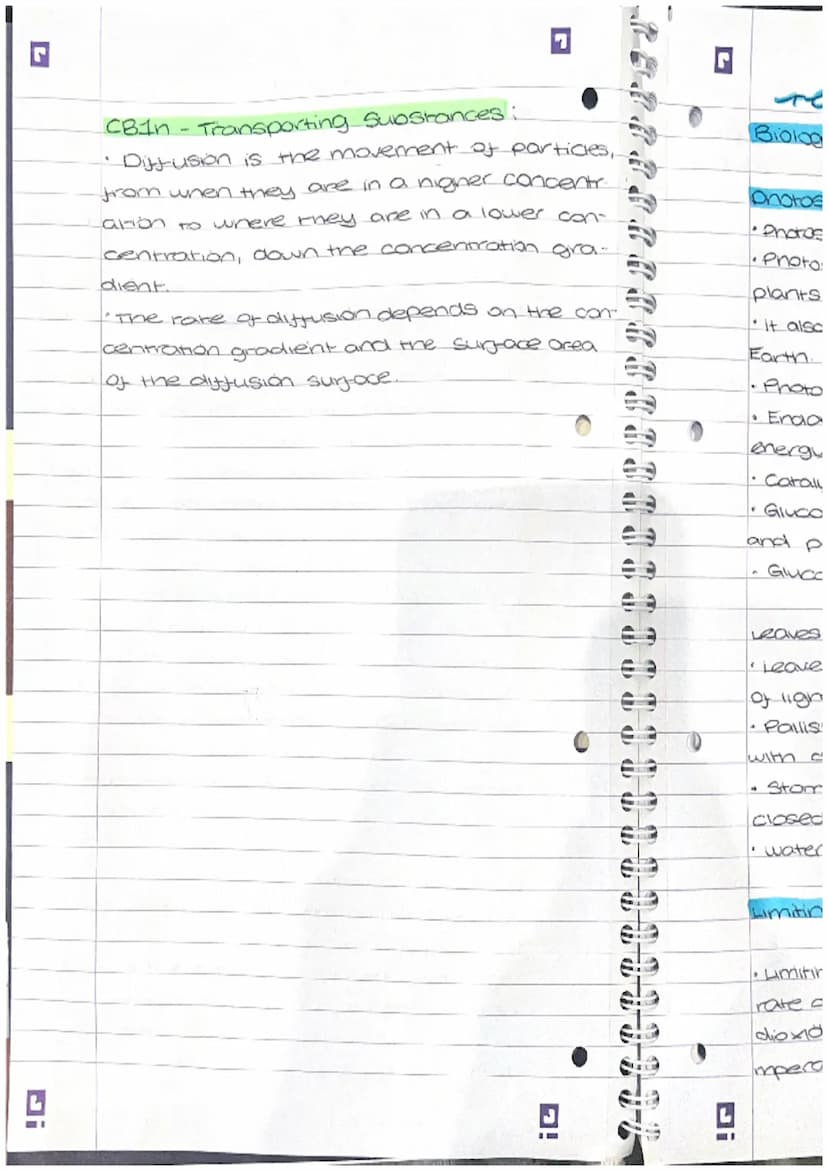 CB1n - Transporting Substances:
• Diffusion is the movement of particles,
from when they are in a higher concentr-
ation to where they are in a lower con-
centration, down the concentration gra-
dient.
• The rate of diffusion depends on the con-
centration gradient and the surface area
of the diffusion surface.
Biolog
Photos
• Photos
• Photo
plants
• It also
Earth.
• Photo
• Endo
energy
• Catal
• Gluco
and p
• Gluc
Leaves
• Leave
of ligh
• Pallis
with c
• Stom
closed
• Water
Limitin
• Limitin
rate o
dioxid
mpera